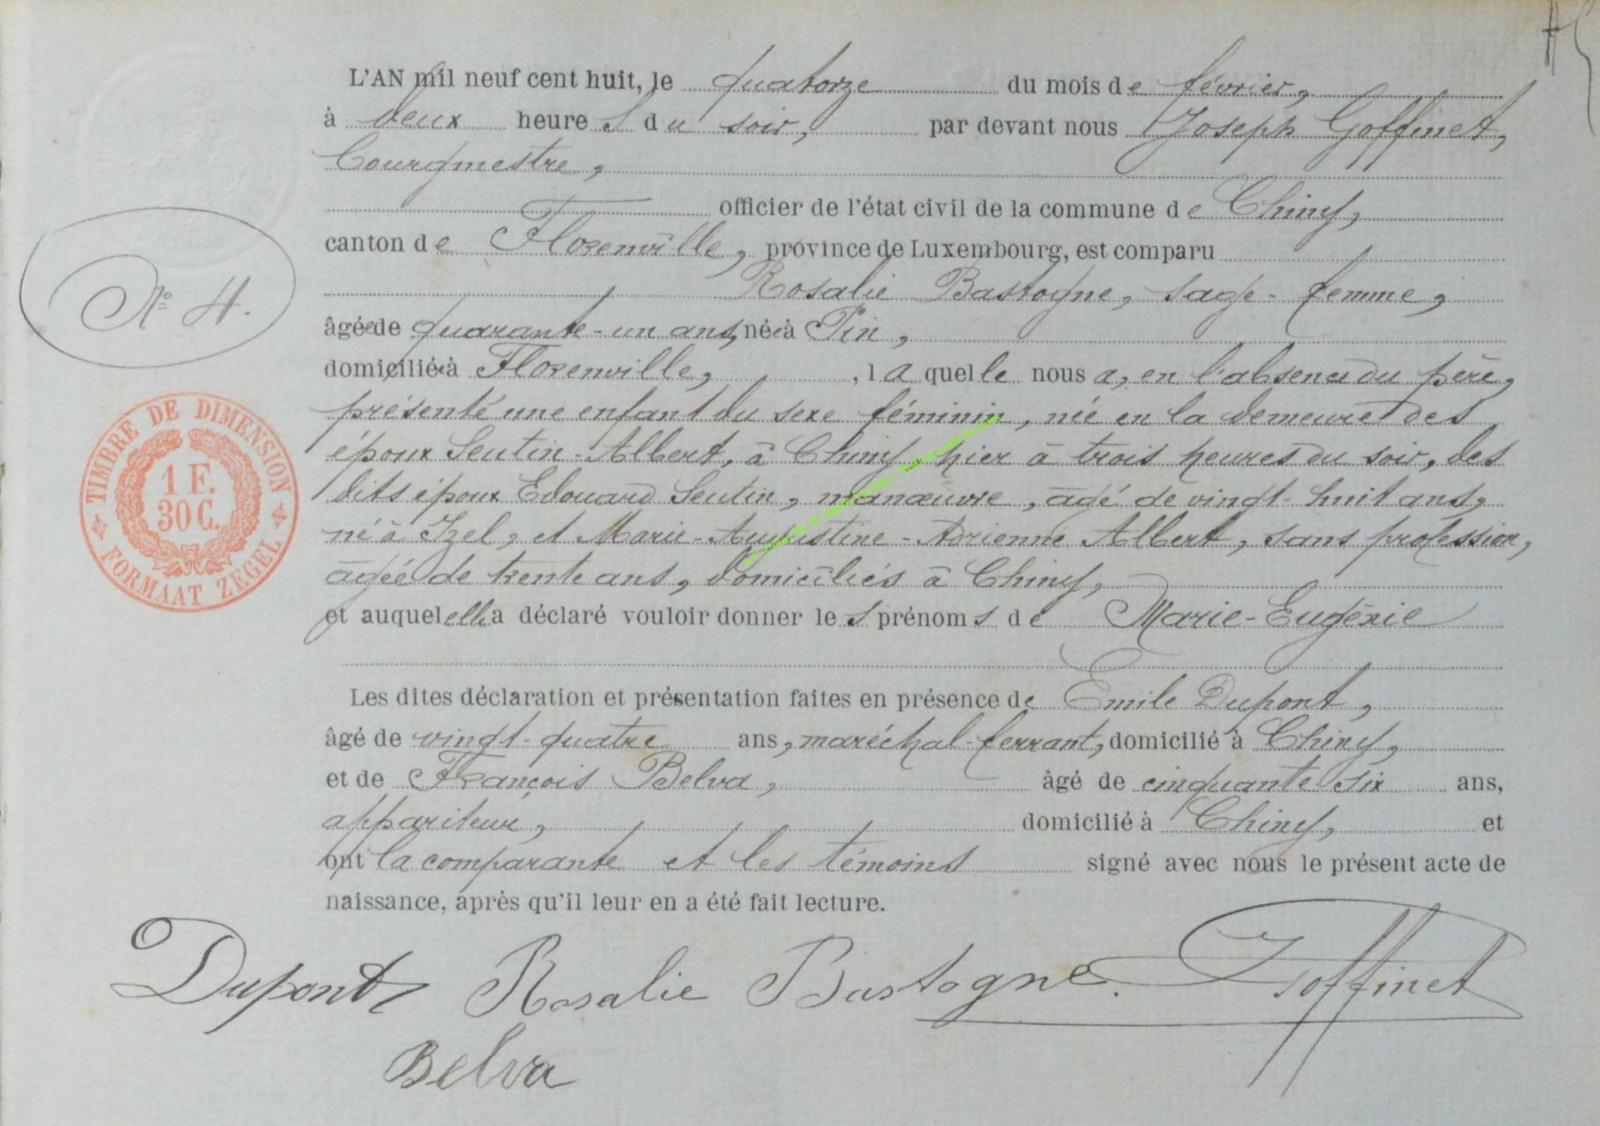 L'AN mil neuf cent huit, le quatorze du mois de février,
à deux heures du soir, par devant nous Joseph Goffinet,
bourgmestre,
officier de l'état civil de la commune de Chiny,
canton de Florenville, province de Luxembourg, est comparu
Rosalie Bastogne, sage-femme,
âgée de quarante-un ans, née à Pin,
domiciliée à Florenville, laquelle nous a, en l'absence du père,
présenté une enfant du sexe féminin, née en la demeure des
époux Seutin-Albert, à Chiny hier à trois heures du soir, des
dits époux Edouard Seutin, manœuvre, âgé de vingt-huit ans,
né à Izel, et Marie-Augustine-Adrienne Albert, sans profession,
âgée de trente ans, domiciliés à Chiny,
et auquel elle a déclaré vouloir donner les prénoms de Marie-Eugénie
Les dites déclaration et présentation faites en présence de Emile Dupont,
âgé de vingt-quatre ans, maréchal-ferrant, domicilié à Chiny,
et de François Belva, âgé de cinquante-six ans,
appariteur, domicilié à Chiny, et
ont la comparante et les témoins signé avec nous le présent acte de
naissance, après qu'il leur en a été fait lecture.
Dupont Rosalie Bastogne. Goffinet
Belva
N° 4.
TIMBRE DE DIMENSION
1 F.
30 C.
FORMAAT ZEGEL